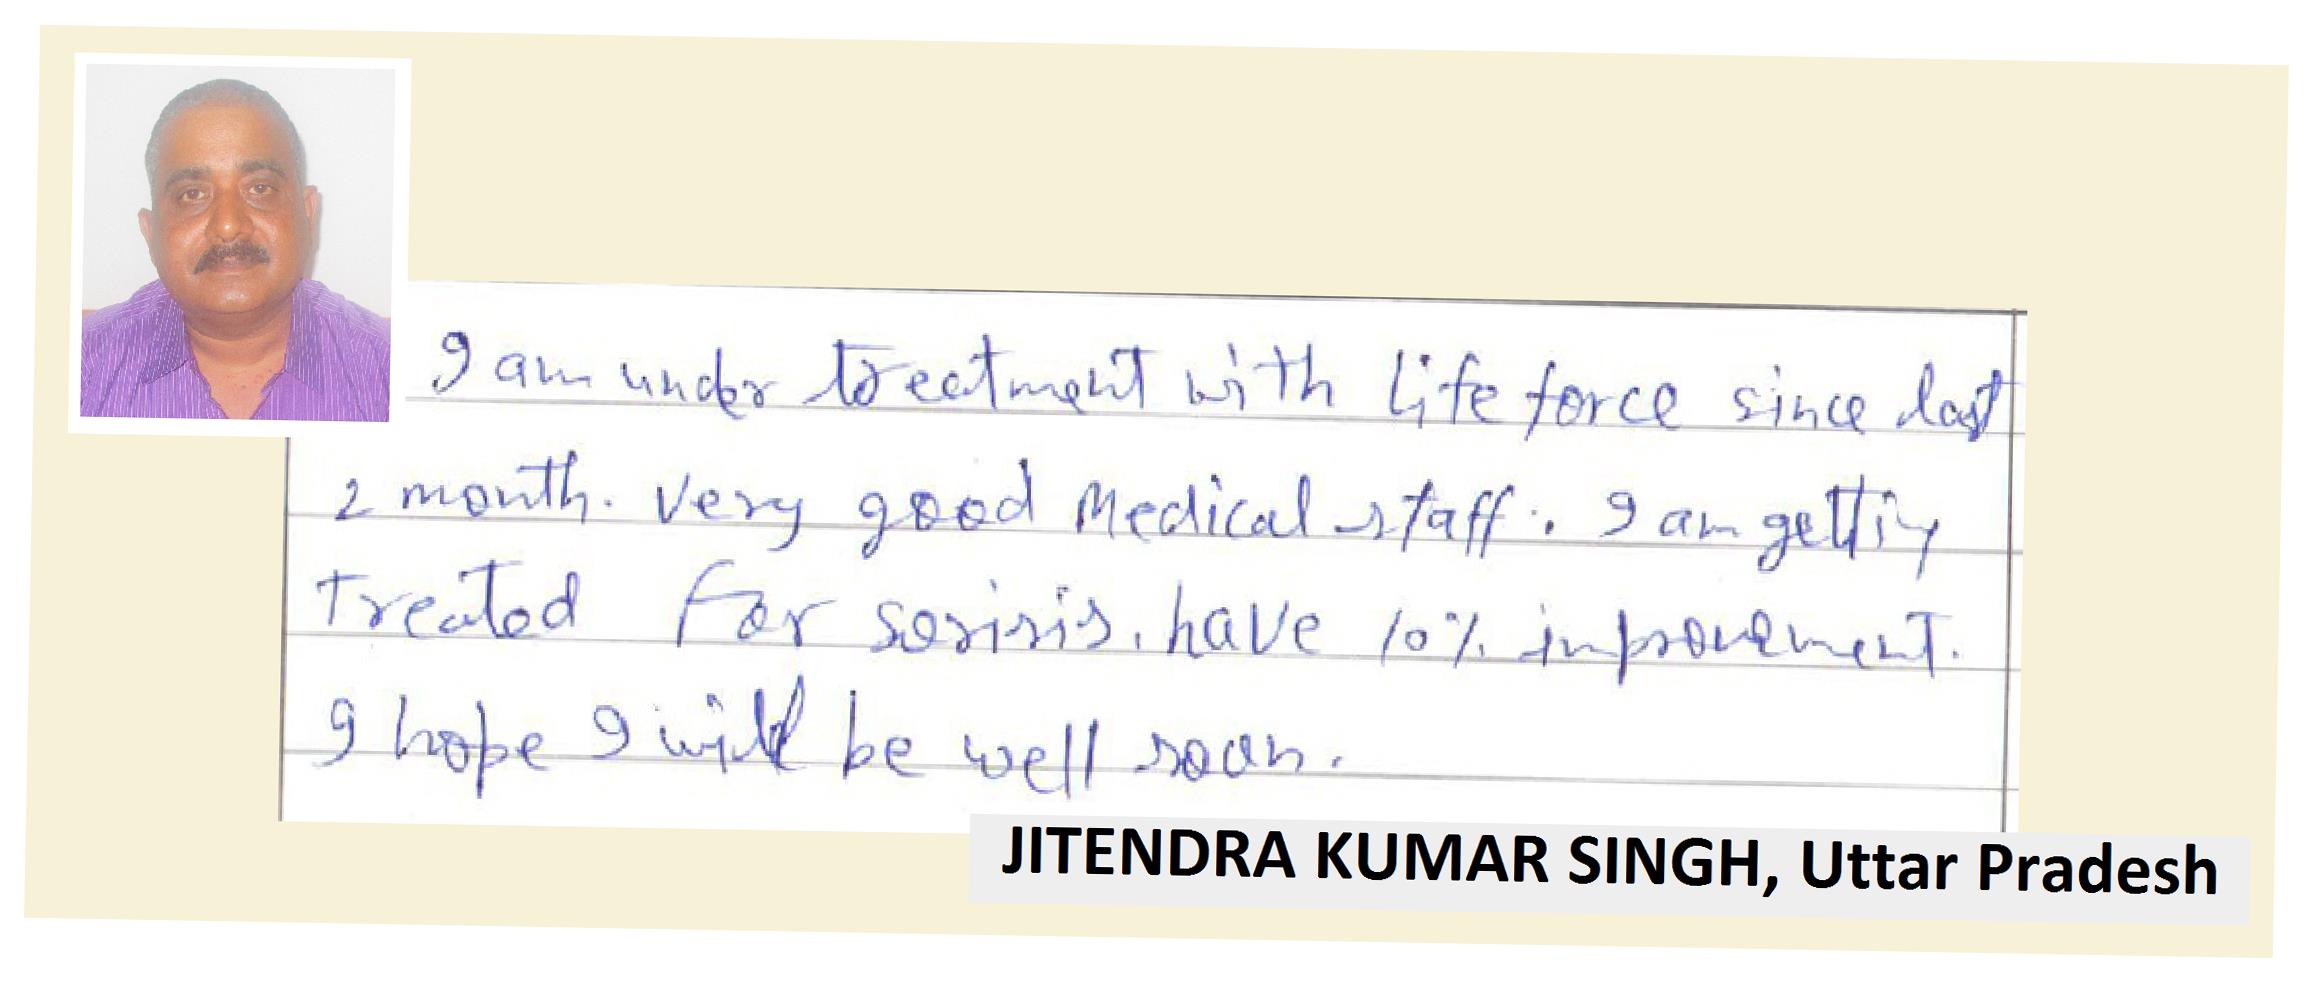 I am under treatment with Life force since last
2 month. very good Medical staff. I am getting
Treated For sorisis. have 10% improvement.
I hope I will be well soon.
JITENDRA KUMAR SINGH, Uttar Pradesh